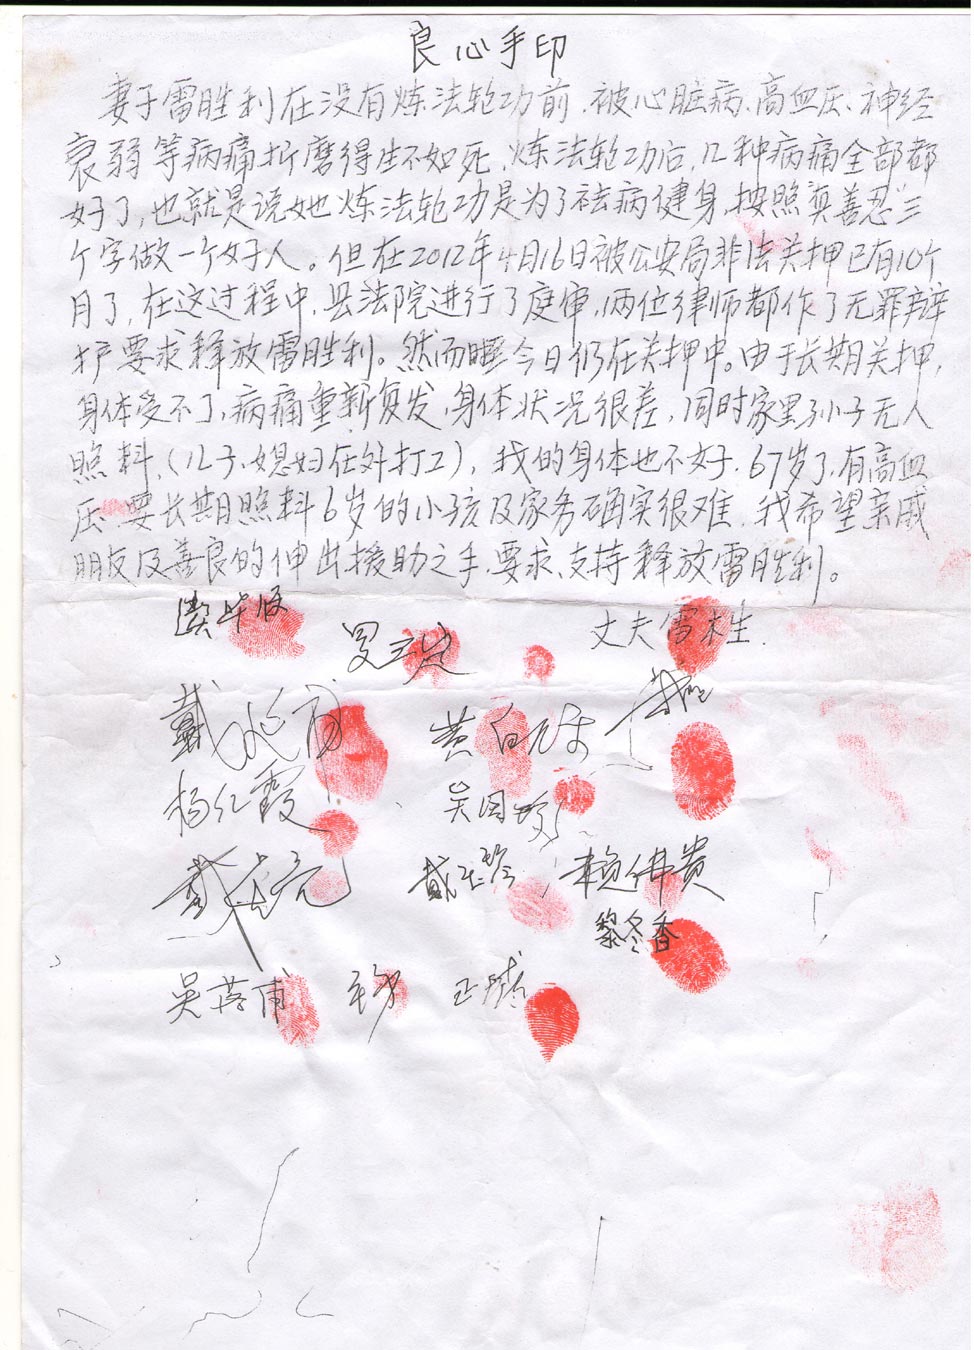 良心手印
妻子雷胜利在没有炼法轮功前.被心脏病、高血压、神经
衰弱等病痛折磨得生不如死.炼法轮功后,几种病痛全部都
好了,也就是说她炼法轮功是为了祛病健身.按照真善忍三
个字做一个好人。但在2012年4月16日被公安局非法关押已有10个
月了,在这过程中.县法院进行了庭审,两位律师都作了无罪辩
护要求释放雷胜利。然而今日仍在关押中。由于长期关押,
身体受不了,病痛重新复发,身体状况很差,同时家里小子无人
照料,(儿子、媳妇在外打工),我的身体也不好.67岁了,有高血
压.要长期照料6岁的小孩及家务确实很难.我希望亲戚
朋友及善良的伸出援助之手.要求、支持释放雷胜利。
丈夫雷木生.
黄
杨红霞
吴国
戴 赖佛贵
黎冬香
吴 甫